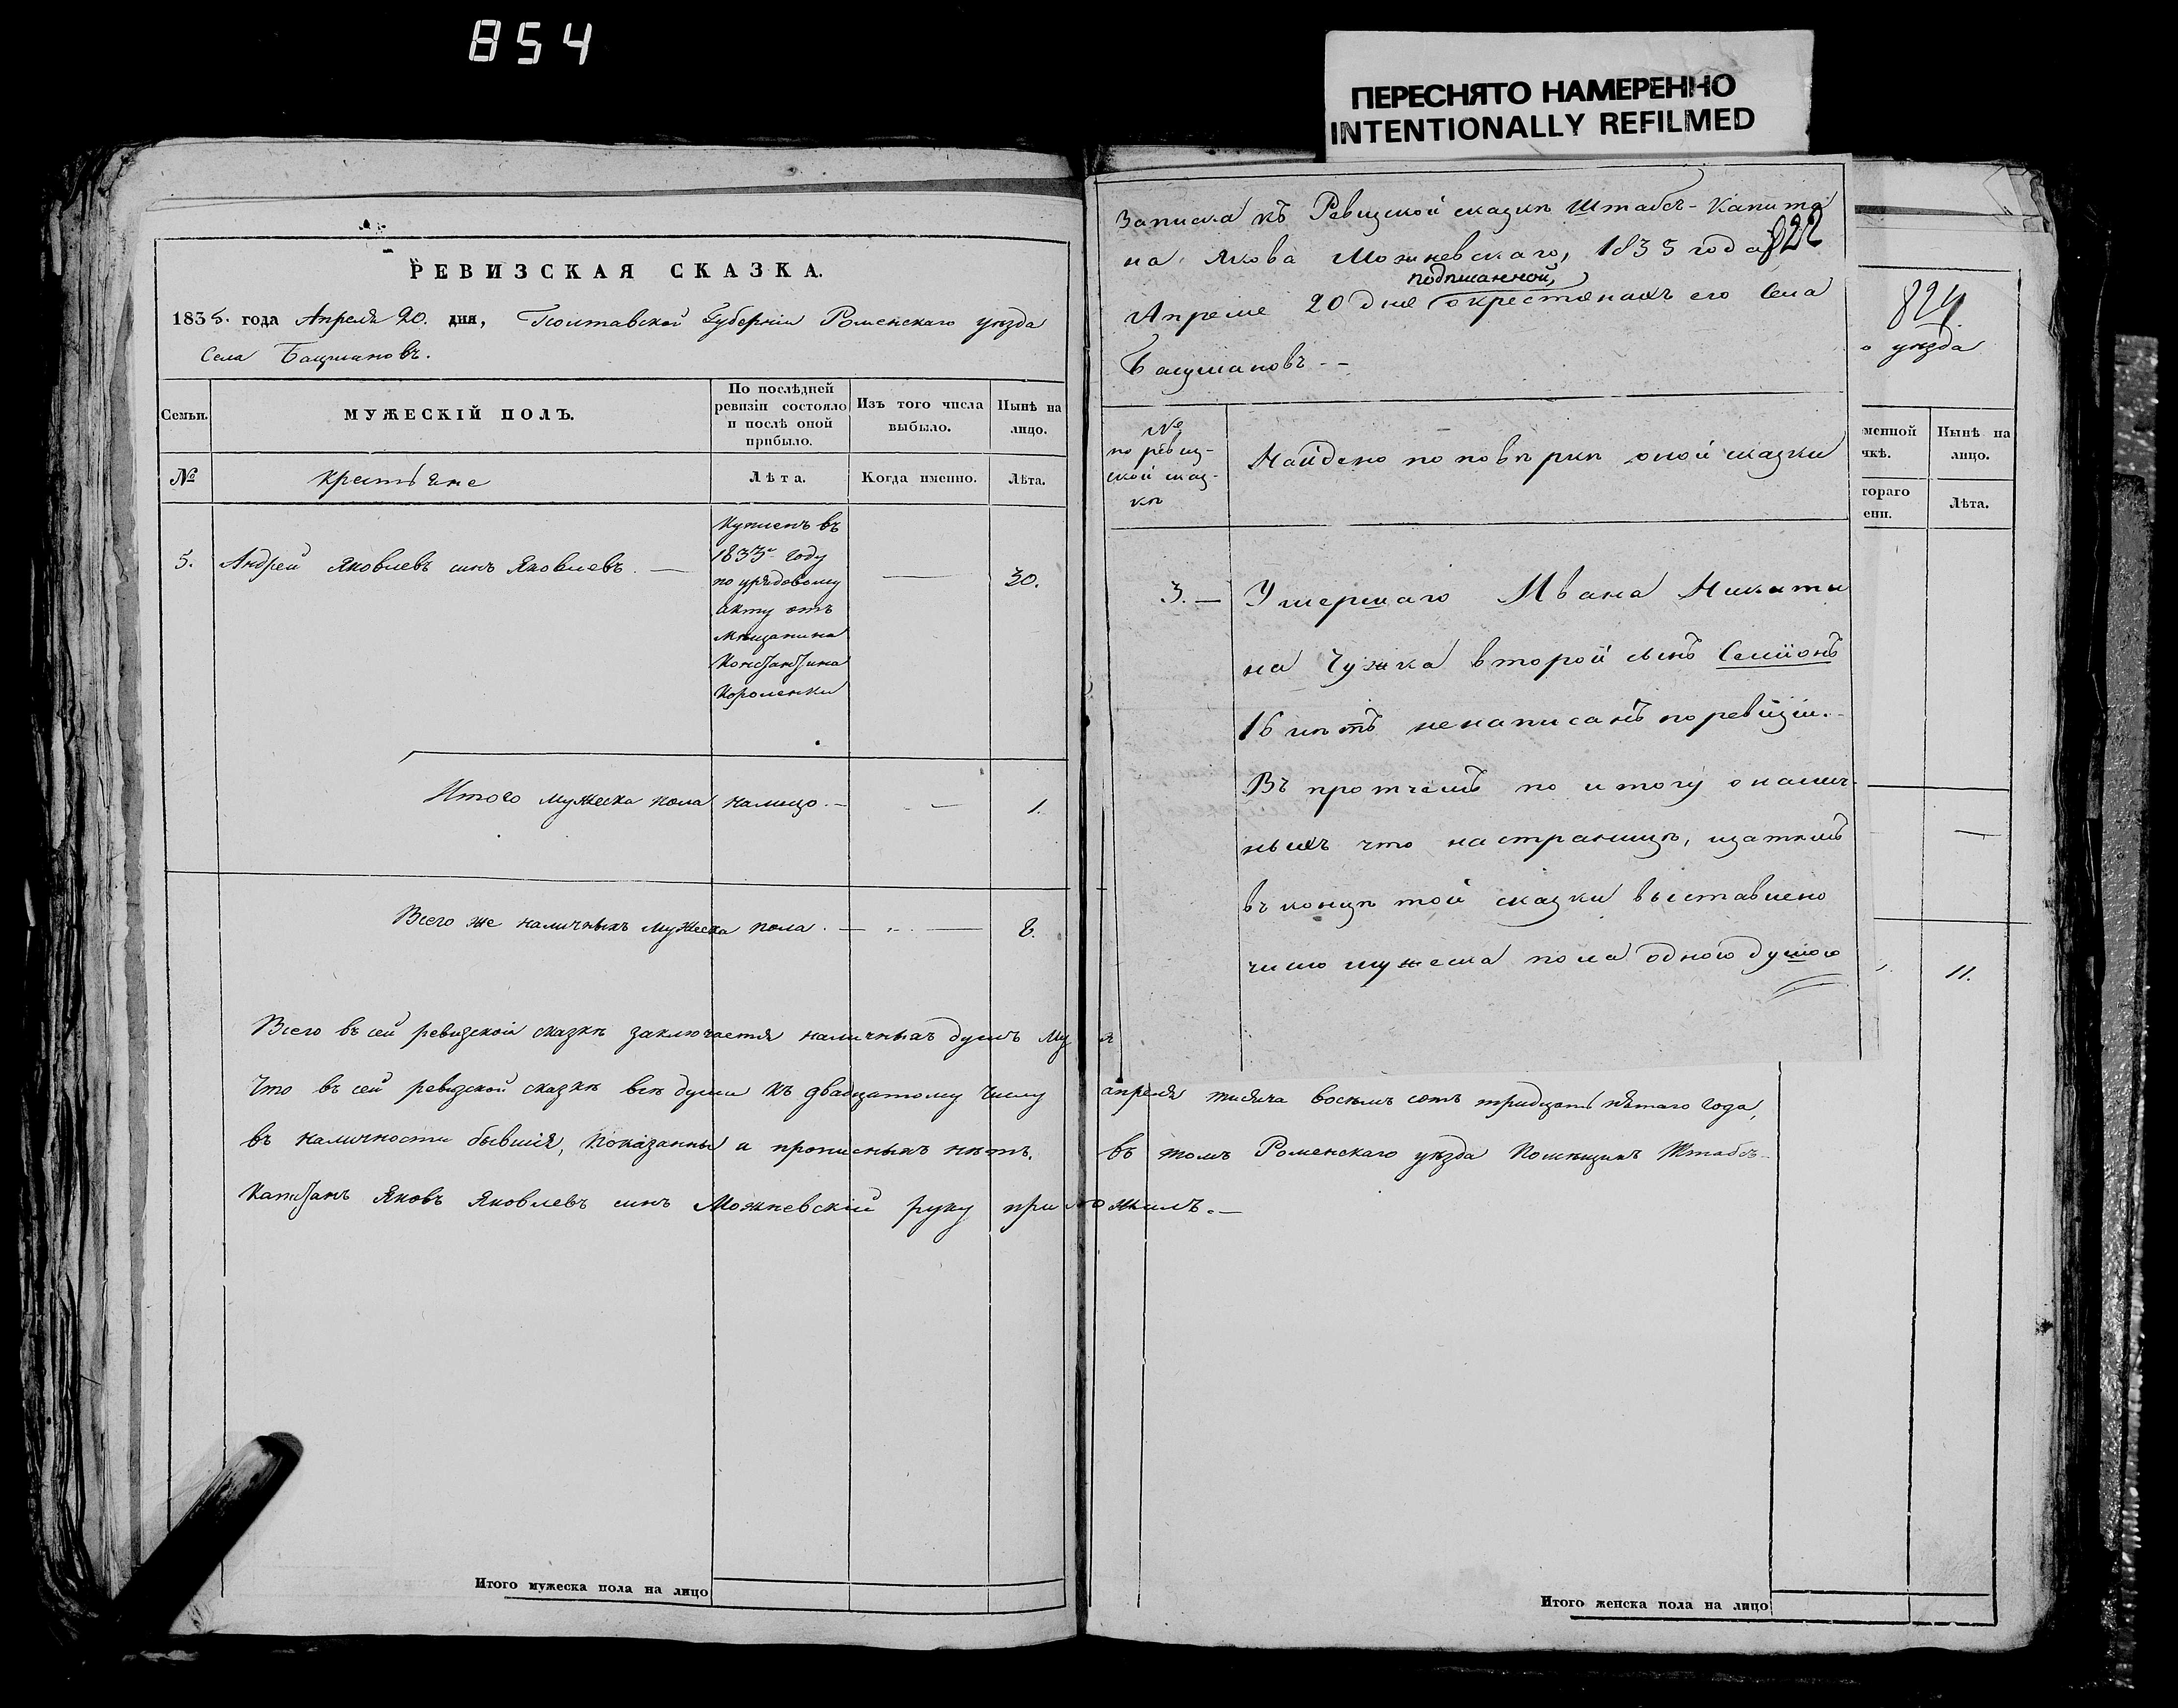 854
ПЕРЕСНЯТО НАМЕРЕННО
INTENTIONALLY REFILMED
РЕВИЗСКАЯ СКАЗКА.
1835. года Апреля 20. дня, Полтавской Губерніи Роменскаго уѣзда
Села Бацмановъ.
Семьи.
МУЖЕСКІЙ ПОЛЪ.
По послѣдней
ревизіи состояло
и послѣ оной
прибыло.
Изъ того числа
выбыло.
Нынѣ на
лицо.
№
Крестьяне
Лѣта.
Когда именно.
Лѣта.
5.
Андрей Яковлевъ сынъ Яковлевъ. —
Купленъ въ
1833м году
по урядовому
акту отъ
мѣщанина
Константина
Короленки
—
30.
Итого мужеска пола налицо — — 1.
Всего же наличныхъ мужеска пола. — — 8.
Всего въ сей ревизской сказкѣ заключается наличныхъ душъ му
Что въ сей ревизской сказкѣ всѣ души къ двадцатому числу
въ наличности бывшія, показанны и прописныхъ нѣтъ.
Капитанъ Яковъ Яковлевъ сынъ Можневскій руку приложилъ. —
Итого мужеска пола на лицо
Записка къ Ревизской сказкѣ Штабсъ-Капита
на Якова Можневскаго, 1835 года
822
подписанной,
Апреле 20 дня о крестянахъ его Села
Бацмановъ --
№
по ревиз-
ской сказ-
кѣ
Найдено по повѣркѣ оной сказки
3. —
Умершаго Ивана Никити
на Чужка второй сынъ Семіонъ
16 лѣтъ ненаписанъ по ревизіи. -
Въ протчемъ по итогу о налич-
ныхъ что на страницѣ, и затѣмъ
въ концѣ той сказки выставлено
число мужеска пола одного душою
824.
о уѣзда
менной
чкѣ.
Нынѣ на
лицо.
тораго
ени.
Лѣта.
—
11.
я
апреля тысяча восемь сотъ тридцать пятаго года,
въ томъ Роменскаго уѣзда Помѣщикъ Штабсъ-
Итого женска пола на лицо